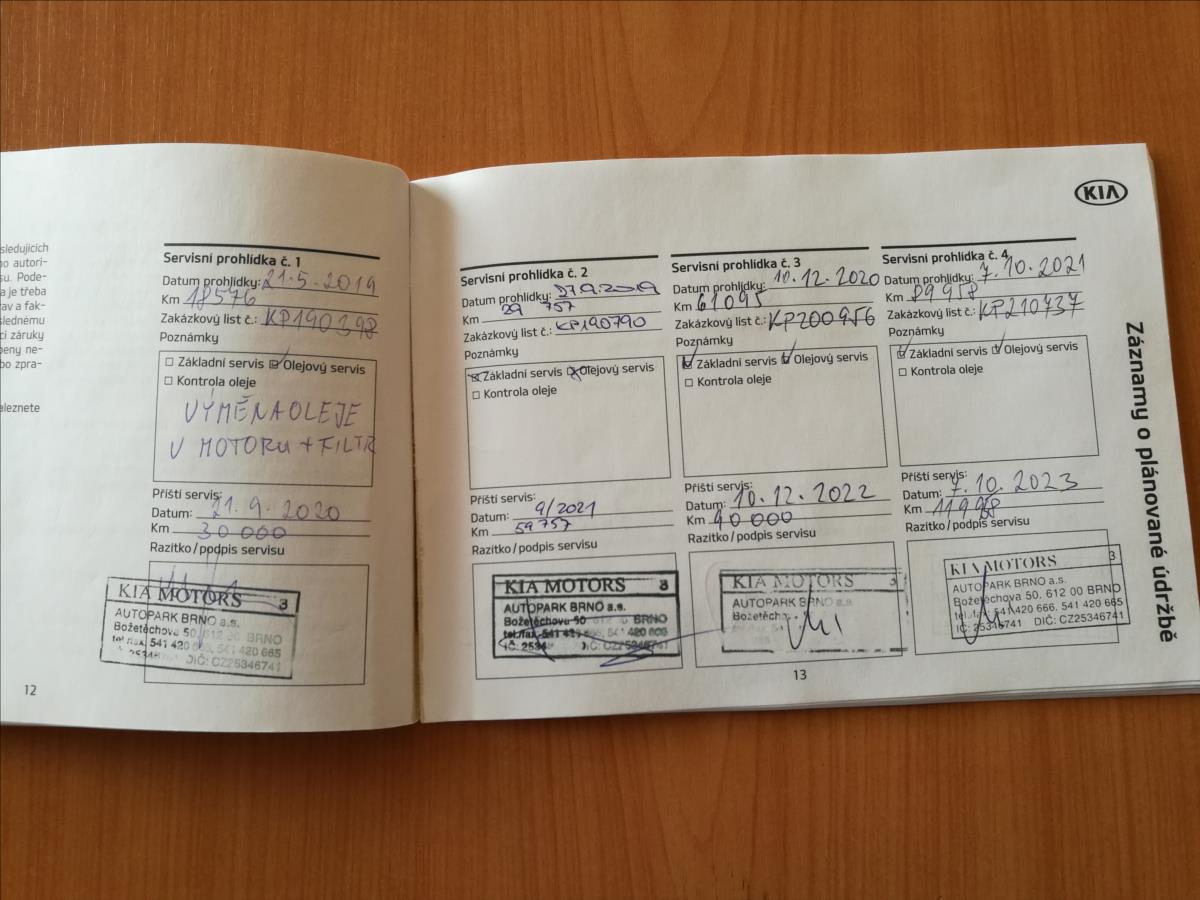 sledujících
no autori-
su. Pode-
a je třeba
rav a fak-
slednému
ci záruky
beny ne-
bo zpra-
aleznete
Servisní prohlídka č. 1
Datum prohlídky: 21.5.2019
Km 18576
Zakázkový list č.: KP190398
Poznámky
☐ Základní servis ☑ Olejový servis
☐ Kontrola oleje
VÝMĚNA OLEJE
V MOTORU + FILTR
Příští servis:
Datum: 21.9.2020
Km 30 000
Razítko/podpis servisu
KIA MOTORS 3
AUTOPARK BRNO a.s.
Božetěchova 50, 612 00 BRNO
tel./fax. 541 420 666, 541 420 665
DIČ: CZ25346741
12
Servisní prohlídka č. 2
Datum prohlídky: 27.9.2019
Km 29 757
Zakázkový list č.: KP190790
Poznámky
☒ Základní servis ☒ Olejový servis
☐ Kontrola oleje
Příští servis:
Datum: 9/2021
Km 59 757
Razítko/podpis servisu
KIA MOTORS 3
AUTOPARK BRNO a.s.
Božetěchova 50 BRNO
DIČ: CZ25346741
Servisní prohlídka č. 3
Datum prohlídky: 10.12.2020
Km 61095
Zakázkový list č.: KP200956
Poznámky
☑ Základní servis ☑ Olejový servis
☐ Kontrola oleje
Příští servis:
Datum: 10.12.2022
Km 90 000
Razítko/podpis servisu
KIA MOTORS 3
AUTOPARK BRNO a.s.
Božetěch
13
Servisní prohlídka č. 4
Datum prohlídky: 7.10.2021
Km 89958
Zakázkový list č.: KP210737
Poznámky
☑ Základní servis ☑ Olejový servis
☐ Kontrola oleje
Příští servis:
Datum: 7.10.2023
Km
Razítko/podpis servisu
KIA MOTORS 3
AUTOPARK BRNO a.s.
Božetěchova 50, 612 00 BRNO
tel./fax. 541 420 666, 541 420 665
IČ: 25346741 DIČ: CZ25346741
KIA
Záznamy o plánované údržbě